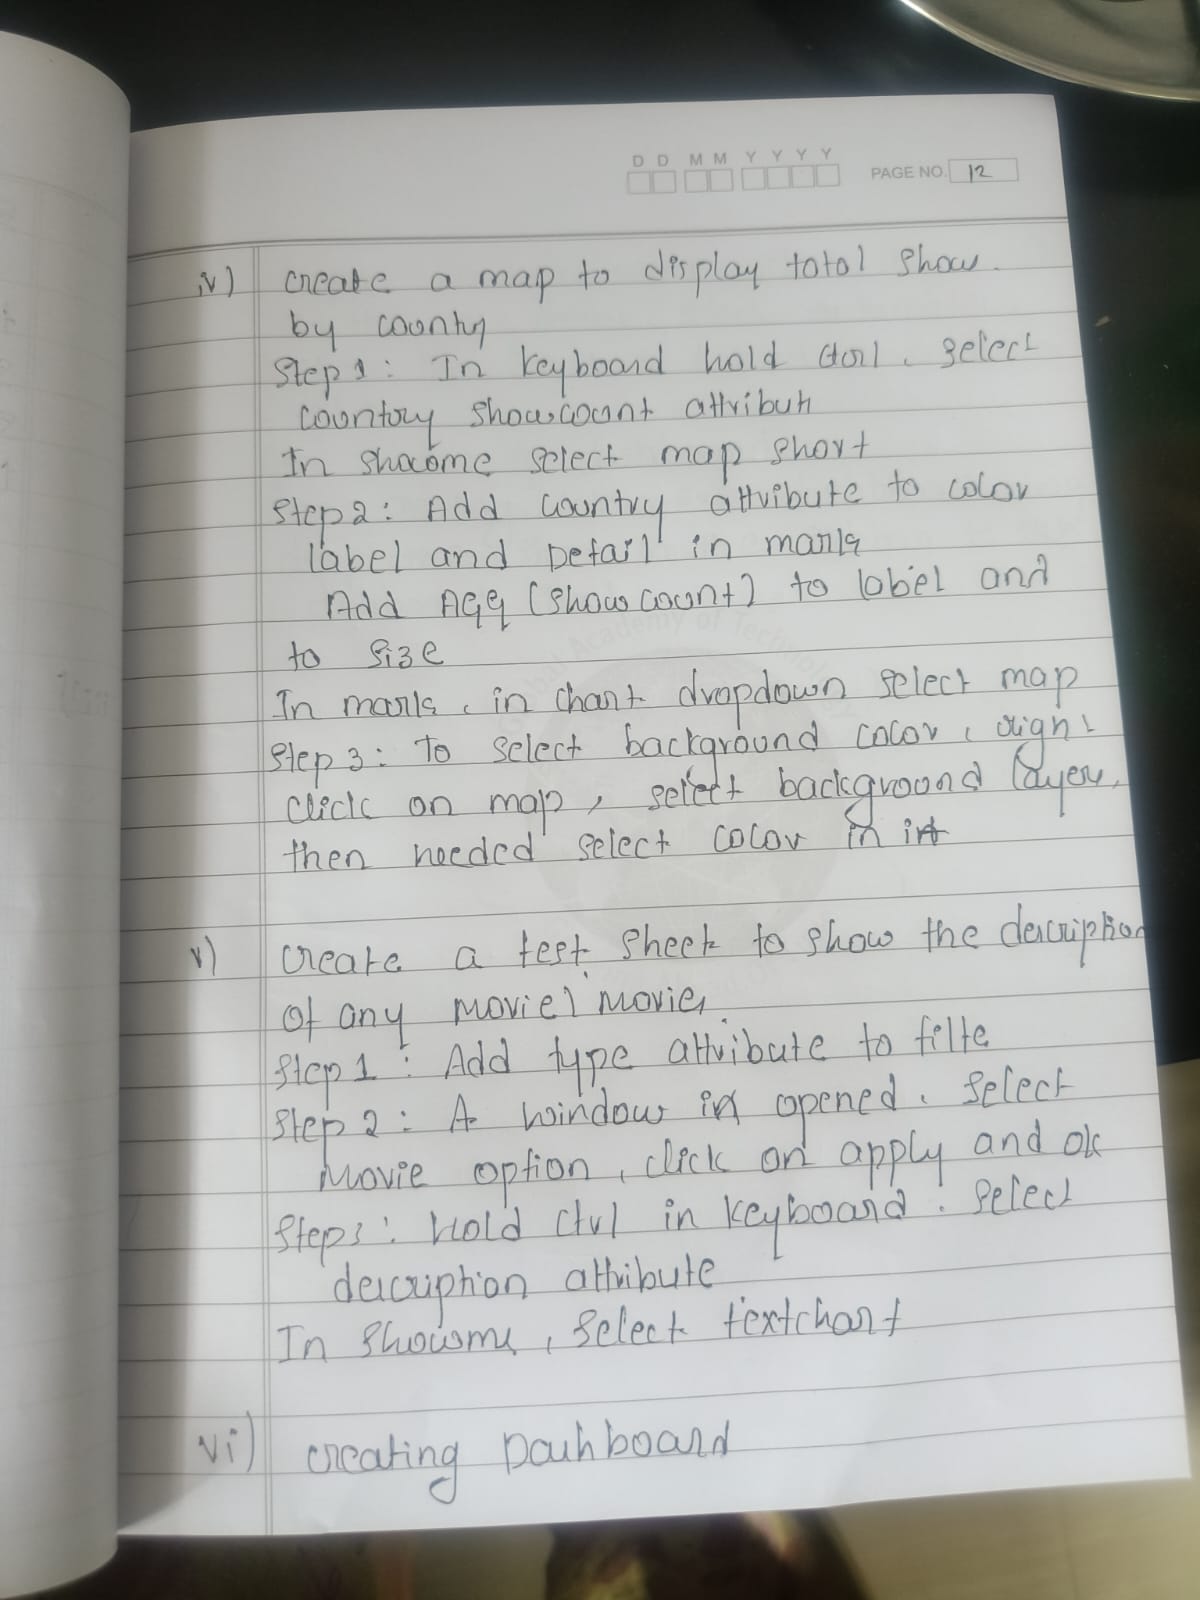 D D M M Y Y Y Y PAGE NO. 12
iv) create a map to display total show.
by country
Step 1: In keyboard hold ctrl, select
country showcount attribut
In showme select map short
Step 2: Add country attribute to color
label and Detail in marks
Add AGG (show count) to label and
to size
In marks, in chart dropdown select map
Step 3: To select background color, right
click on map, select background layer,
then needed select color in it
v) create a test sheet to show the description
of any movie/movies
Step 1: Add type attribute to filte
Step 2: A window is opened. select
Movie option, click on apply and ok
Step 3: Hold ctrl in keyboard. select
description attribute
In showme, select textchart
vi) creating Dashboard